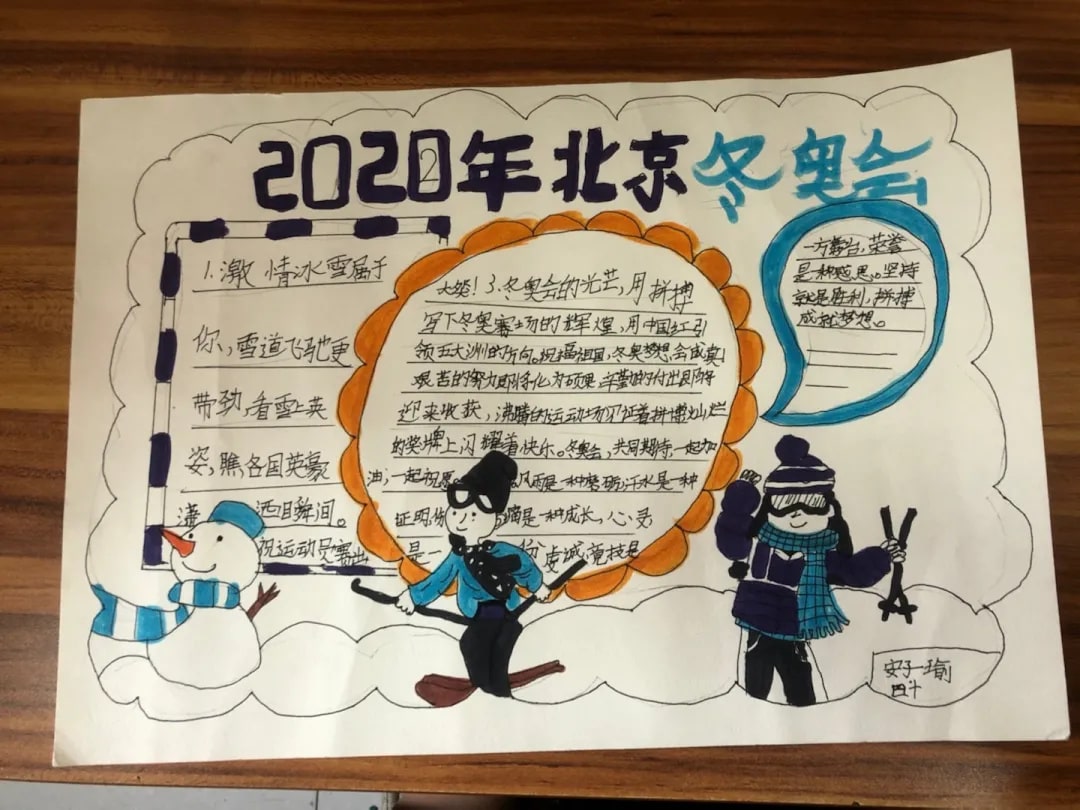 2022年北京冬奥会
1.激情冰雪属于
你,雪道飞驰更
带劲,看雪上英
姿,瞧各国英豪
潇 洒目瞬间。
祝运动员赛出
大奖!3.冬奥会的光芒,用拼搏
写下冬奥赛场的辉煌,用中国红引
领五大洲的方向。祝福祖国,冬奥梦想,会成真!
艰苦的努力即将化为硕果,辛勤的付出即将
迎来收获,沸腾的运动场见证着拼搏,灿烂
的奖牌上闪耀着快乐。冬奥会,共同期待,一起加
油,一起祝愿。 风雨是一种磨砺,汗水是一种
证明,伤 痛是一种成长,心灵
是一 份虔诚,竞技是
一方舞台,荣誉
是一种感恩。坚持
就是胜利,拼搏
成就梦想。
安子瑜
四斗